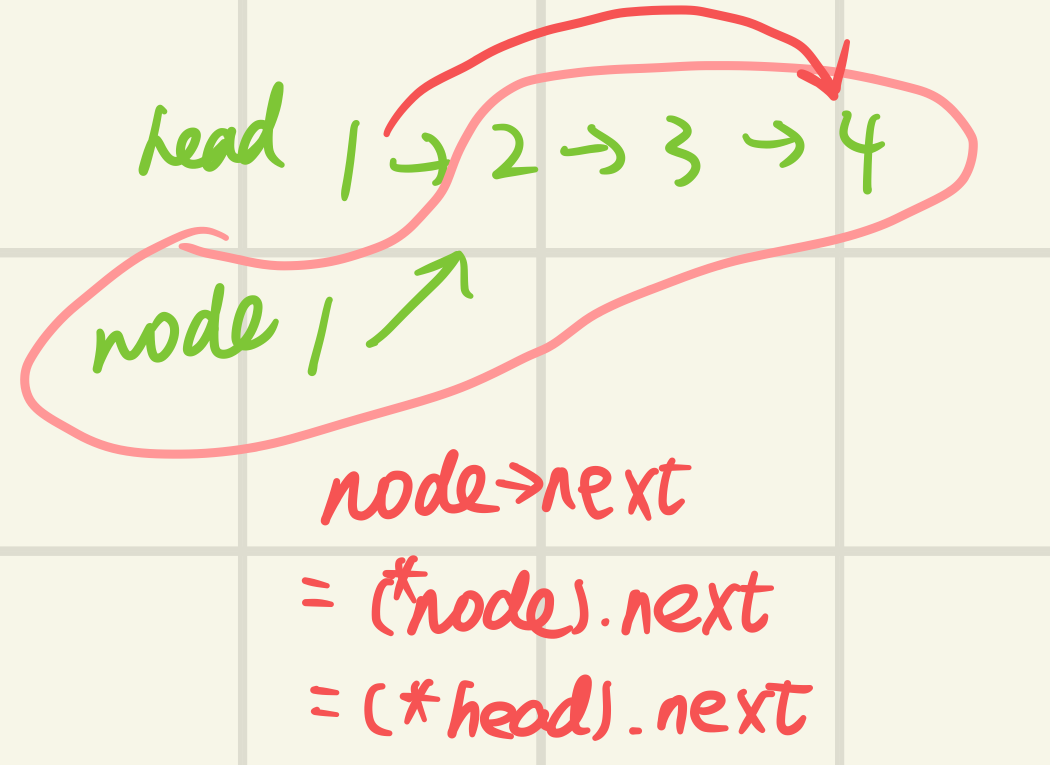 head 1 → 2 → 3 → 4
node 1
node→next
= (*node).next
= (*head).next